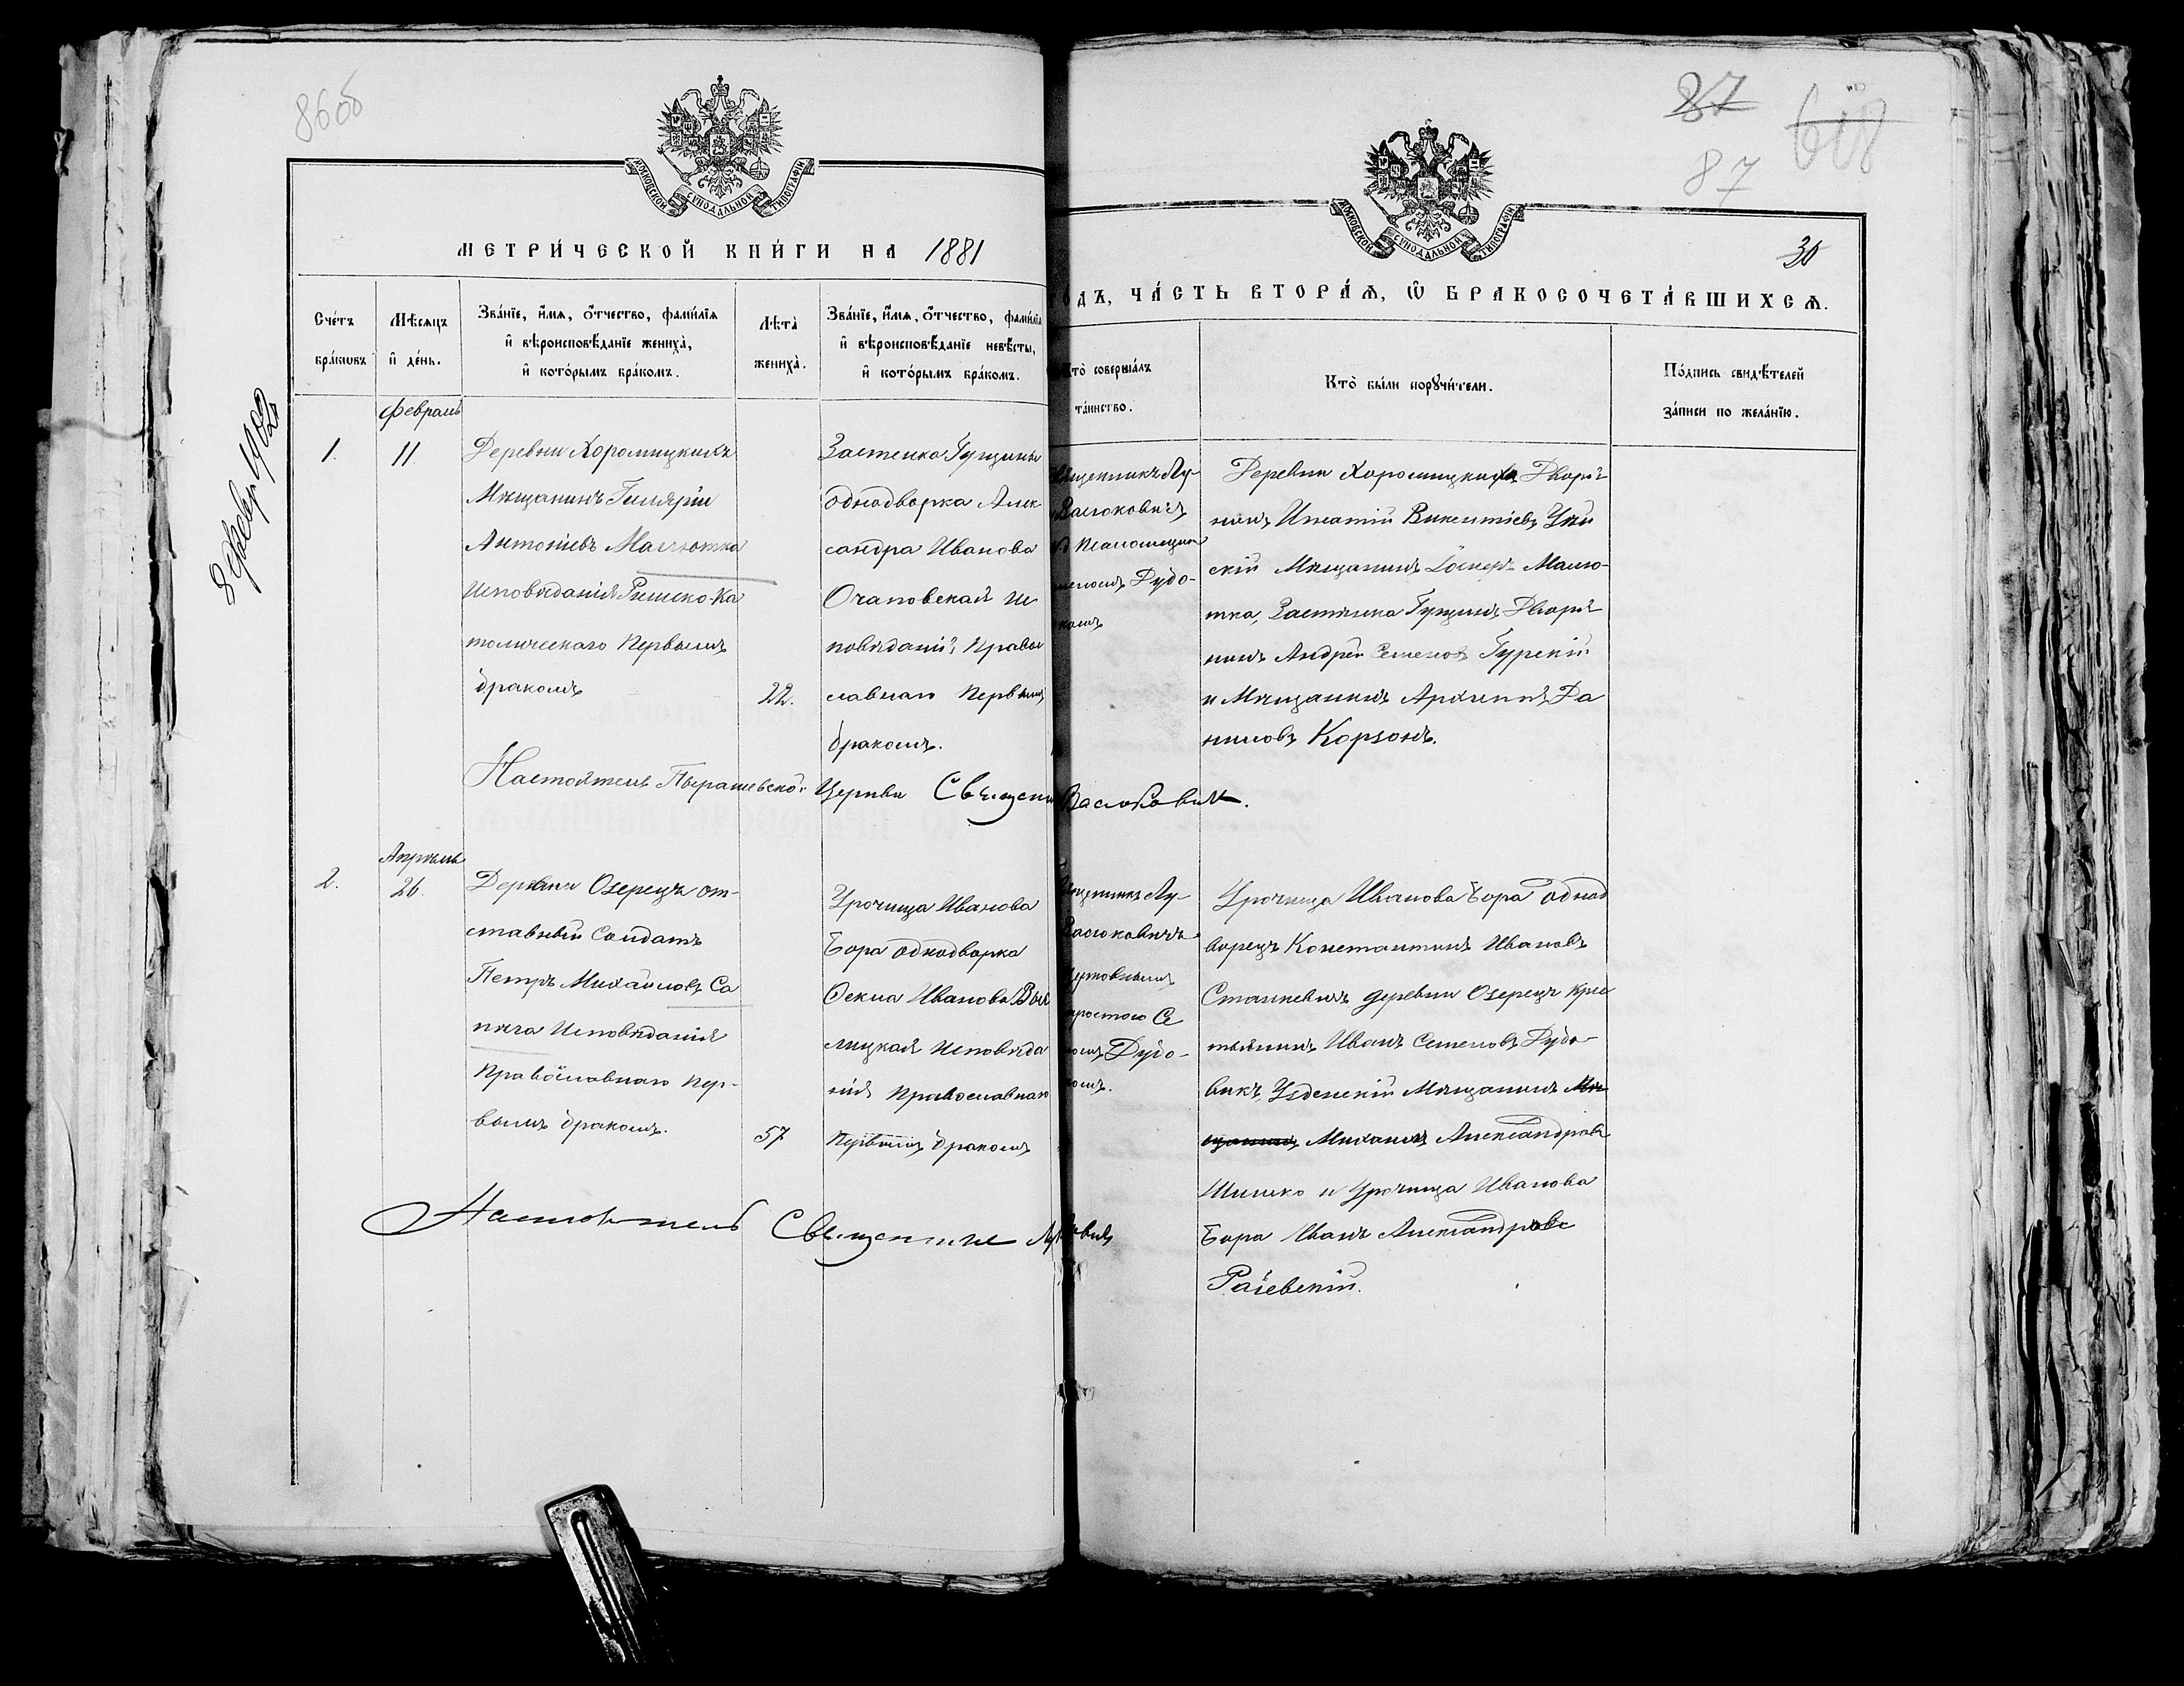 86об
87
87
30
8 Февр. 1902
МОСКОВСКОЙ СѴНОДАЛЬНОЙ ТИПОГРАФІИ
МОСКОВСКОЙ СѴНОДАЛЬНОЙ ТИПОГРАФІИ
МЕТРИ́ЧЕСКОЙ КНИ́ГИ НА 1881
ОДЪ, ЧА́СТЬ ВТОРА́Ѧ, Ѡ БРАКОСОЧЕТА́ВШИХСѦ.
Сче́тъ
бра́ковъ
Мѣ́сяцъ
и҆ де́нь.
Зва́нїе, и҆́мя, ѻ҆́тчество, фами́лїя
и҆ вѣроисповѣ́данїе жениха̀,
и҆ кото́рымъ бра́комъ.
Лѣта̀
жениха̀.
Зва́нїе, и҆́мя, ѻ҆́тчество, фами́лїя
и҆ вѣроисповѣ́данїе невѣ́сты,
и҆ кото́рымъ бра́комъ.
Кто̀ соверша́лъ
та́инство.
Кто̀ бы́ли порꙋчи́тели.
По́дпись свидѣ́телей
за́писи по жела́нїю.
Февраль
1.
11
Деревни Хоромицкихъ
Мѣщанинъ Гилярій
Антоніевъ Малютка
Исповѣданія Римско-Ка
толическаго Первымъ
бракомъ
22.
Застенка Гущины
однодворка Алек
сандра Иванова
Очаповская ис
повѣданія Право
славнаго Первымъ
бракомъ.
щенникъ Лу-
Васюковичъ
Псаломщик
Дудо-
комъ
Деревни Хоромицкихъ Дворя
нинъ Игнатій Викентіевъ
скій Мѣщанинъ Малю-
тка, Застѣнка Гущинъ Дворя
нинъ Андрей Семеновъ Гурскій
и Мѣщанинъ Архиппъ Да
ниловъ Корзонъ.
Настоятель Пырашевской Церкви Священ Васюкович.
Апрѣль
2.
26.
Деревни Озерецъ от-
ставный Солдатъ
Петръ Михаиловъ Са
пѣга Исповѣданія
Православнаго пер-
вымъ бракомъ.
57
Урочища Иванова
Бора однодворка
Ѳекла Иванова
лицкая Исповѣда
нія Православнаго
Первымъ бракомъ
щенникъ Лу-
Васюковичъ
простого Се
Дудо-
комъ.
Урочища Иванова Бора однод
ворецъ Константинъ Ивановъ
Станкевичъ деревни Озерецъ Крес
тьянинъ Иванъ Семеновъ Дудо-
викъ, Узденскій Мѣщанинъ Мѣ
щанинъ Михаилъ Александровъ
Шишко и Урочища Иванова
Бора Иванъ Александровъ
Раевскій.
Настоятель Священник